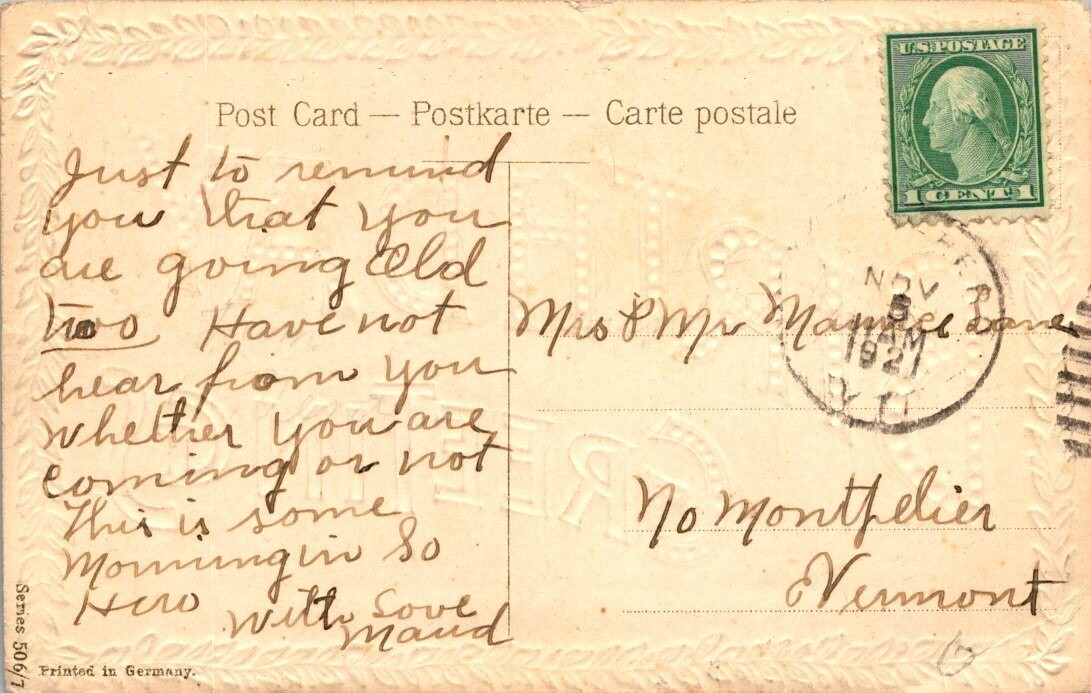 Post Card — Postkarte — Carte postale
U.S. POSTAGE
1 CENT 1
NOV
5
11 AM
1921
VT
Just to remind
you that you
are going Old
too Have not
hear from you
whether you are
coming or not
This is some
Morning in So
Hero
With Love
Maud
Mrs & Mr Maurice Lane
No Montpelier
Vermont
Series 506/7
Printed in Germany.
6